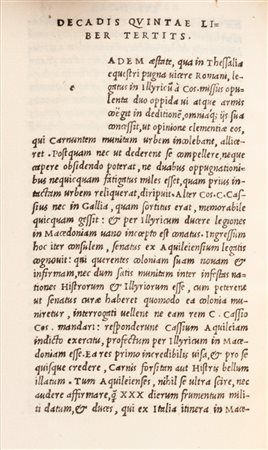 DECADIS QVINTAE LI=
BER TERTIVS.
EADEM æstate, qua in Thessalia
equestri pugna vicere Romani, le=
gatus in Illyricũ à Cos. missus opu=
lenta duo oppida ui atque armis
coëgit in deditionem, omniaq; ijs sua
concessit, ut opinione clementiæ eos,
qui Carnuntem munitum urbem incolebant, allice=
ret. Postquam nec ut dederent se compellere, neque
capere obsidendo poterat, ne duabus oppugnationi=
bus nequicquam fatigatus miles esset, quam prius in=
tactam urbem reliquerat, diripuit. Alter Cos. C. Cas=
sius nec in Gallia, quam sortitus erat, memorabile
quicquam gessit: & per Illyricum ducere legiones
in Macedoniam uano incœpto est conatus. Ingressum
hoc iter consulem, senatus ex Aquileiensium legatis
cognouit: qui querentes coloniam suam nouam &
infirmam, nec dum satis munitam inter infestas na=
tiones Histrorum & Illyriorum esse, cum peterent
ut senatus curæ haberet quomodo ea colonia mu=
niretur, interrogati uellent ne eam rem C. Cassio
Cos. mandari: responderunt Cassium Aquileiam
indicto exercitu, profectum per Illyricum in Mace=
doniam esse. Ea res primo incredibilis uisa, & pro se
quisque credere, Carnis forsitan aut Histris bellum
illatum. Tum Aquileienses, nihil se ultra scire, nec
audere affirmare, q̃ XXX dierum frumentum mili
ti datum, & duces, qui ex Italia itinera in Mace=